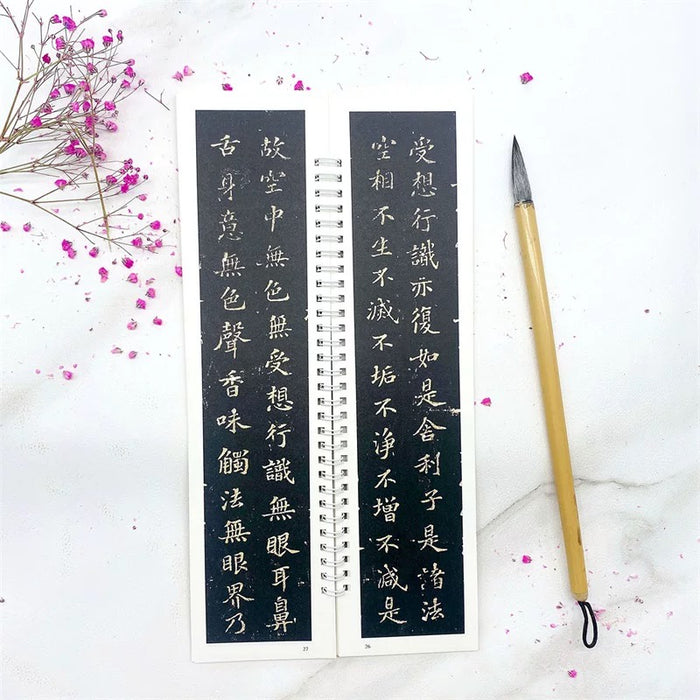 受想行識亦復如是舍利子是諸法
空相不生不滅不垢不淨不增不減是
26
故空中無色無受想行識無眼耳鼻
舌身意無色聲香味觸法無眼界乃
27